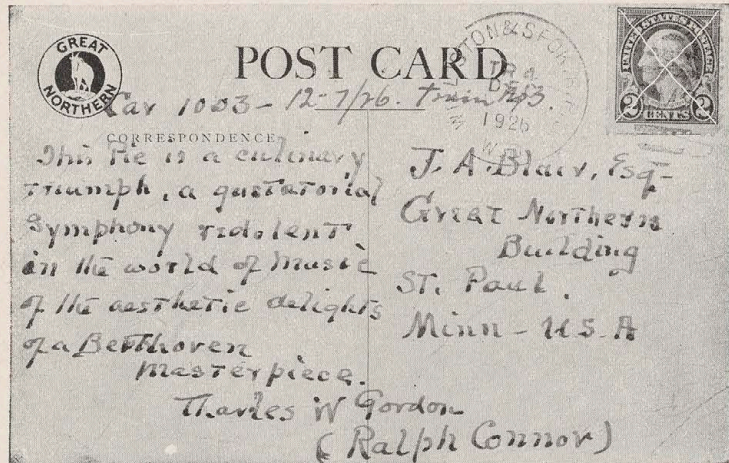 GREAT
NORTHERN
POST CARD
TR 4
1926
UNITED STATES POSTAGE
2 CENTS 2
Car 1003 - 12-7/26. Train
CORRESPONDENCE
This Pie is a culinary
triumph, a gustatorial
Symphony redolent
in the world of music
of the aesthetic delights
of a Beethoven
masterpiece.
Charles W Gordon
(Ralph Connor)
J. A. Blair, Esq-
Great Northern
Building
St. Paul.
Minn - U.S.A